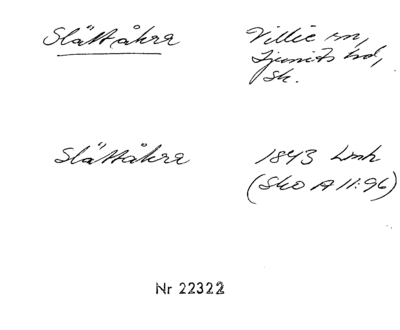 Slättåkra
Villie sn,
Ljunits hd,
Sk.
Slättåkra
1843 Lmh
(Sko A 11:96)
Nr 22322